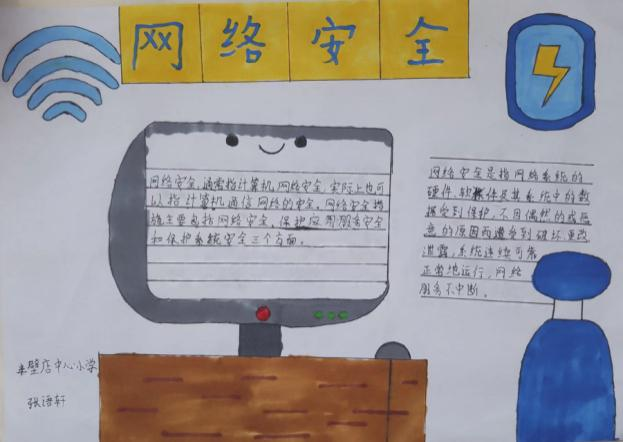 网络安全
网络安全,通常指计算机网络安全,实际上也可
以指计算机通信网络的安全。网络安全措
施主要包括网络安全、保护应用服务安全
和保护系统安全三个方面。
网络安全是指网络系统的
硬件、软件及其系统中的数
据受到保护,不因偶然的或恶
意的原因而遭受到破坏、更改
泄露,系统连续可靠
正常地运行,网络
服务不中断。
壁店中心小学
张语轩